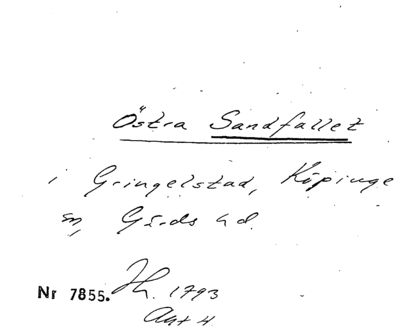 Östra Sandfallet
i Gringelstad, Köpinge
sn, Gärds hd.
Nr 7855. 1793
Akt 4